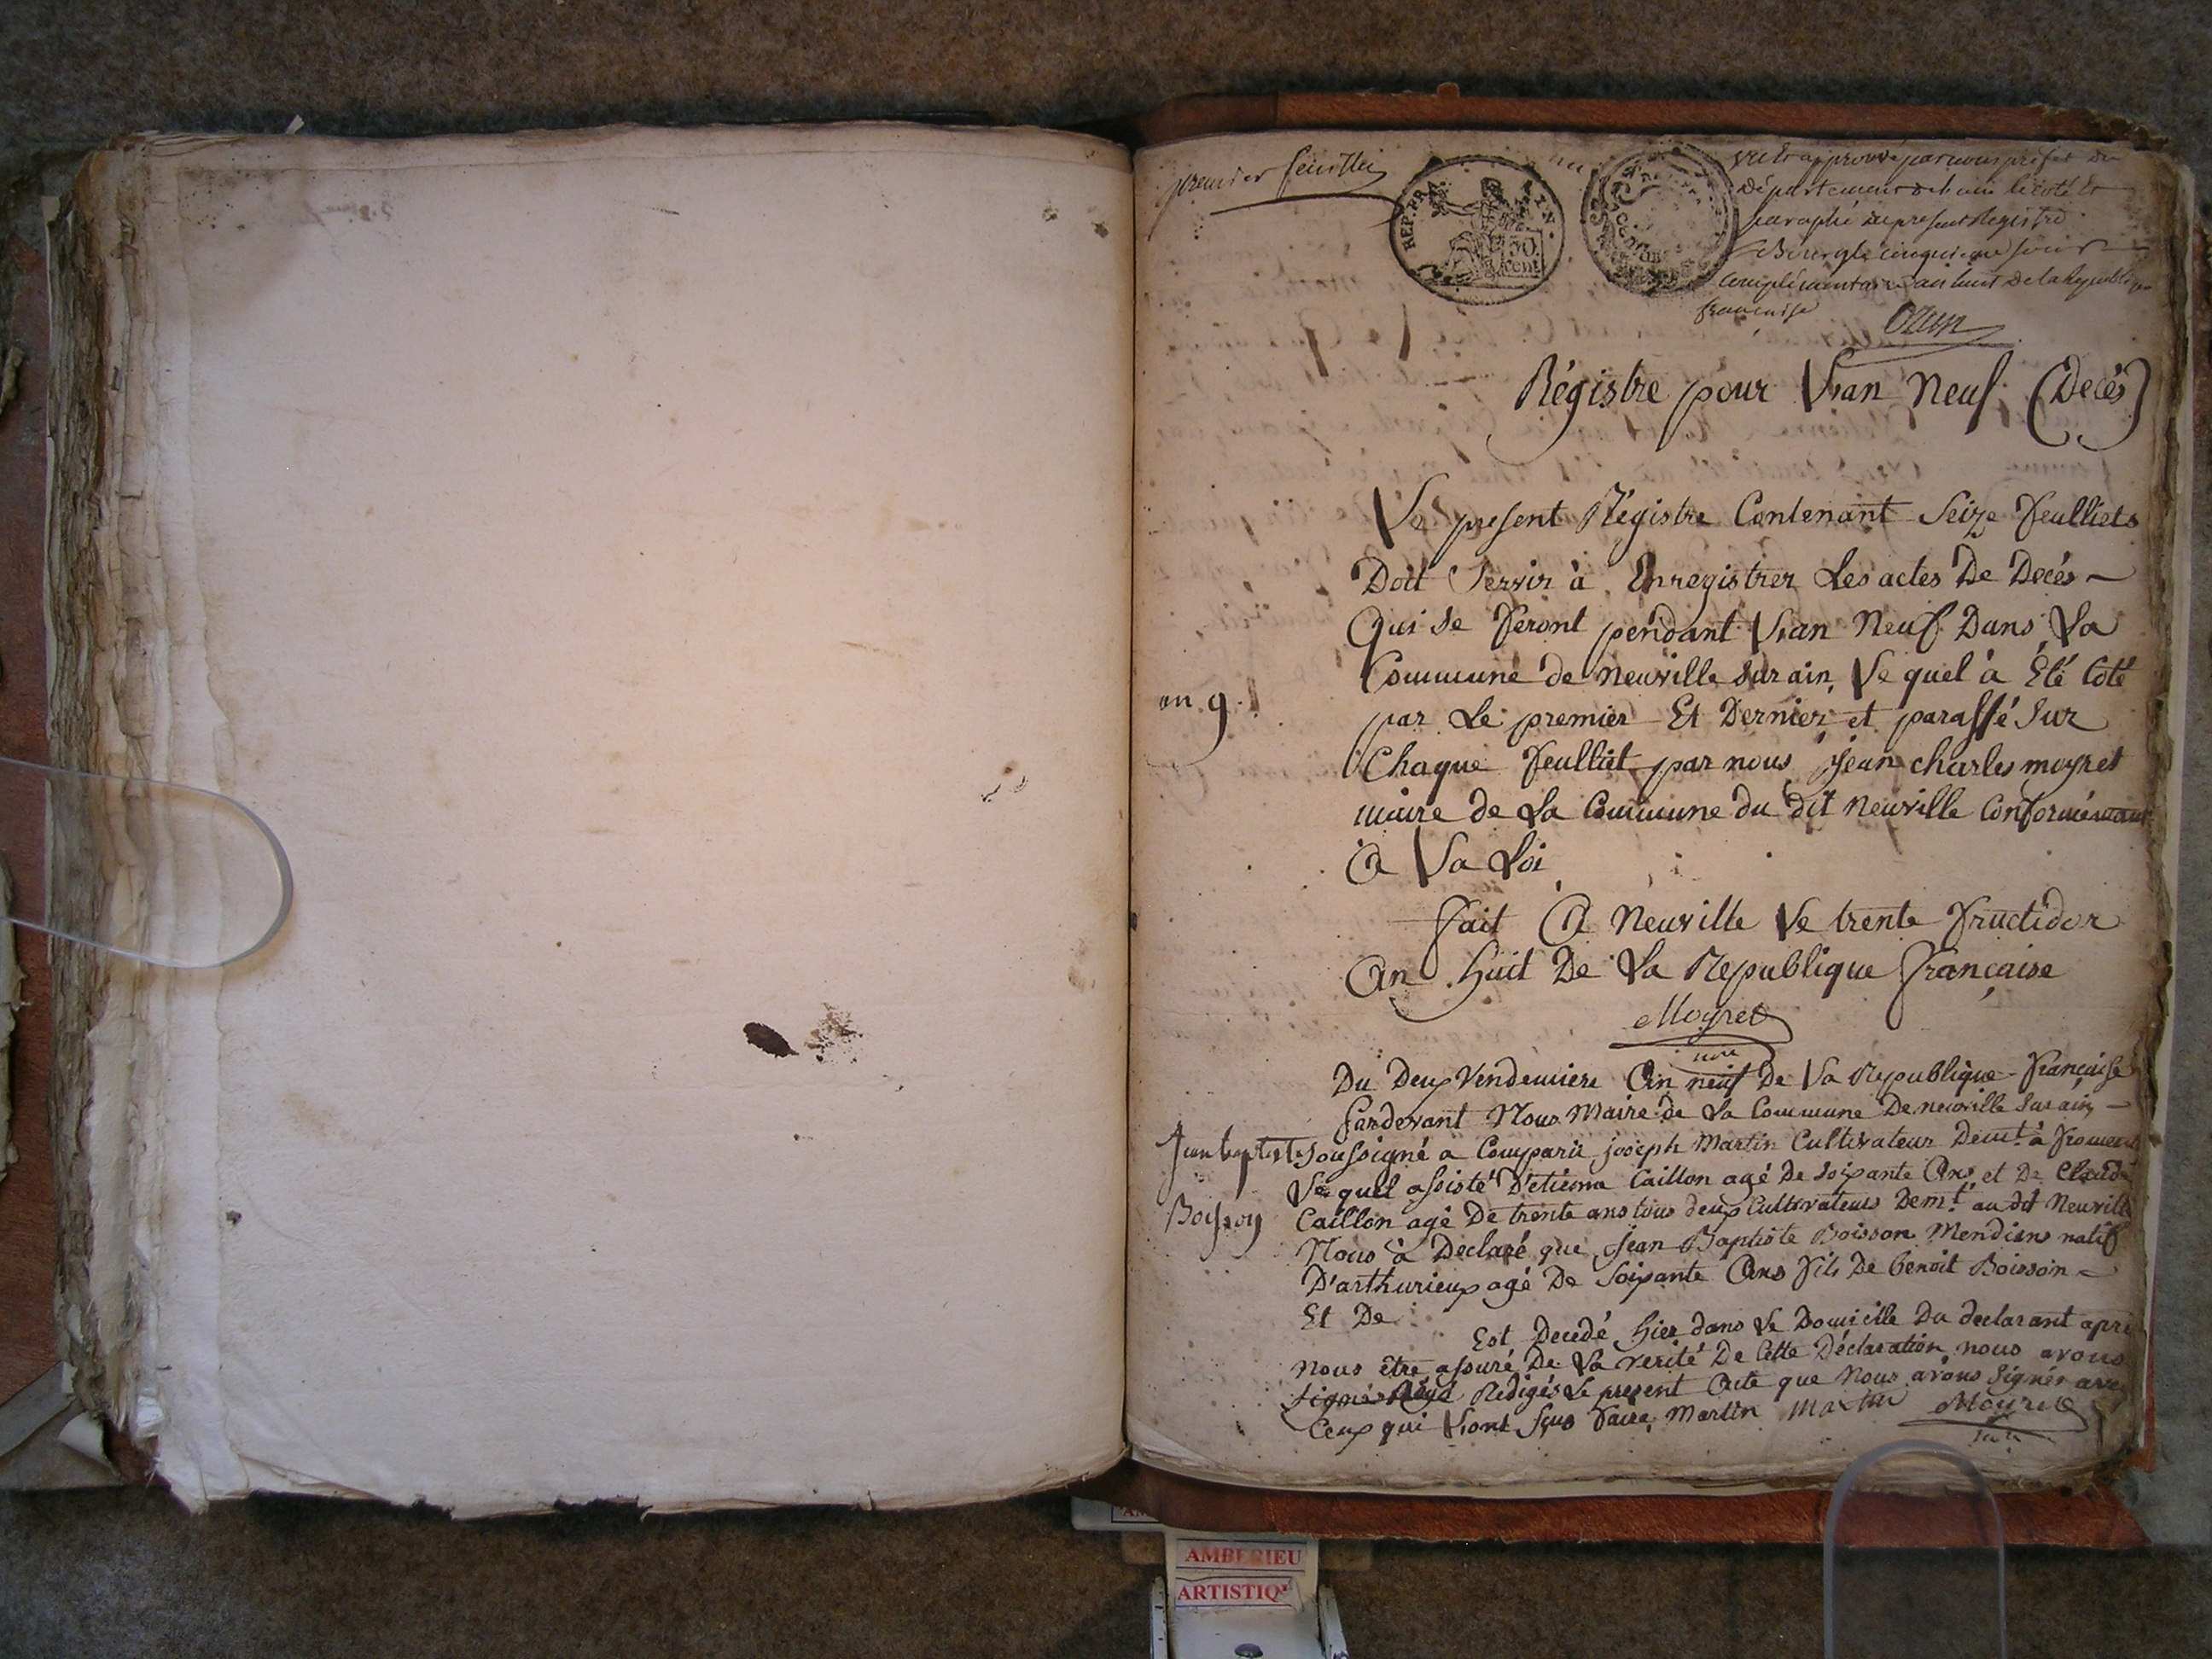 premier feuillet
REP. FRA
50 cent
vu et approuvé par nous préfet du
Département de l'ain le coté et
paraphé du present Registre
Bourg le cinquieme jour
complémentaire an huit de la Republique
française
Ozun
Régistre pour L'an Neuf (Decés)
Le present Régistre Contenant Seize feulliets
Doit Servir à Enregistrer Les actes De Decés
Qui se feront pendant L'an Neuf Dans La
Commune de Neuville sur ain, Le quel à Été Coté
an 9
par Le premier Et Dernier et paraffé Sur
Chaque feulliet par nous jean charles moyret
maire de La Commune du dit Neuville Conformément
A La Loi
fait A Neuville Le trente fructidor
An huit De La Republique française
Moyret
Du Deux Vendemiere An neuf De La Republique Française
Pardevant Nous Maire de La Commune De neuville Sur ain
Jean baptiste
Soussigné a Comparu joseph Martin Cultivateur Demt. à
Le quel assisté D'etienne Caillon agé De soixante Ans et De Claude
Boisson
Caillon agé De trente ans tous deux Cultivateurs Demt. au dit Neuville
Nous à Declaré que jean Baptiste Boisson Mendiens natif
D'arthurieux agé De Soixante Ans fils De benoit Boisson
Et De
Est Decedé hier dans Le Domicille Du declarant après
nous être assuré De La verité De Cette Déclaration nous avons
signé Rédigés Le present Acte que Nous avons Signér avec
Ceux qui L'ont Sçus faire, Martin martin Moyret
AMBERIEU
ARTISTIQ